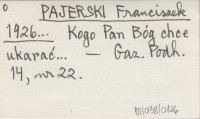 PAJERSKI Franciszek
1926... Kogo Pan Bóg chce
ukarać... — Gaz. Podh.
14, nr 22.